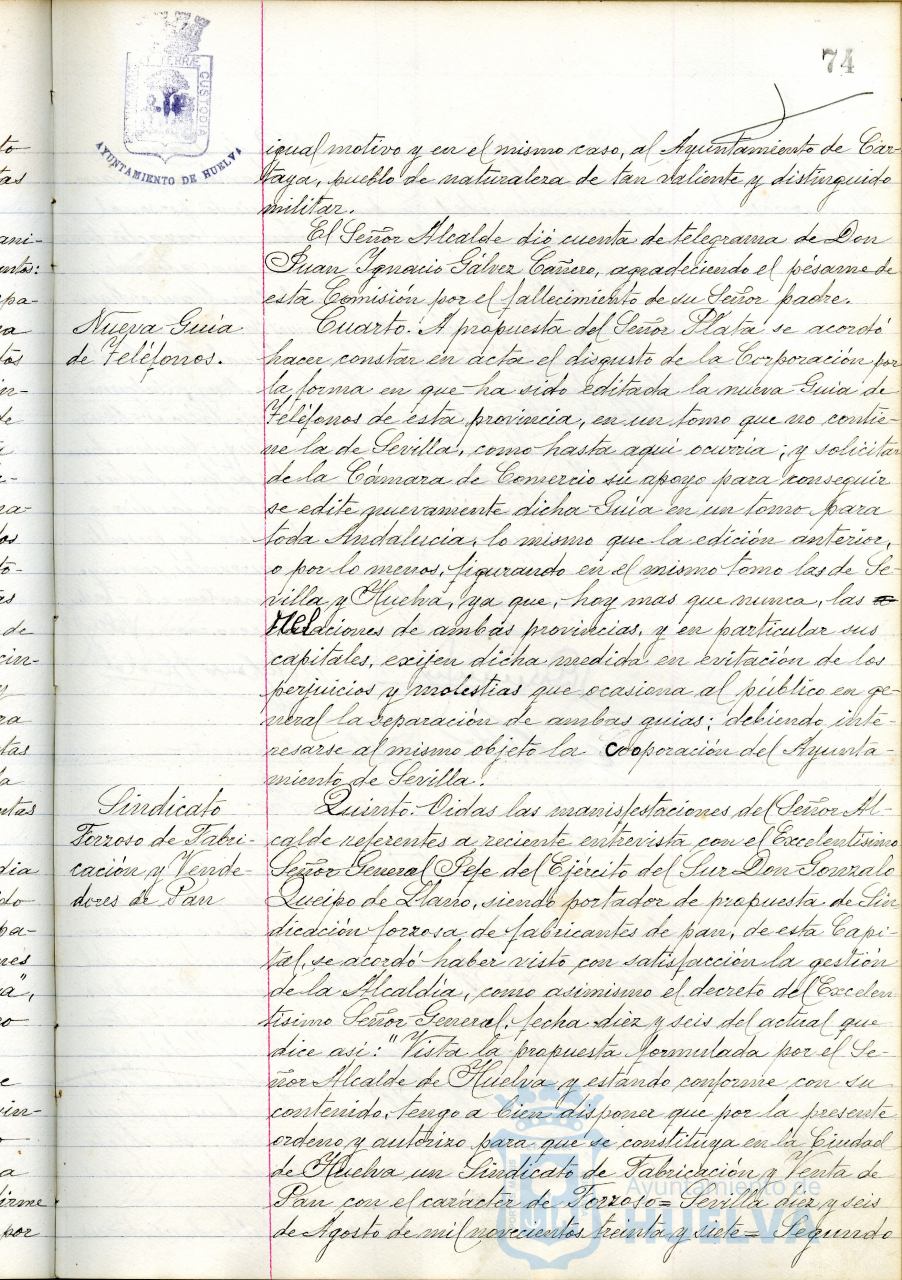 74
PORTUS MARIS ET TERRÆ CUSTODIA
AYUNTAMIENTO DE HUELVA
igual motivo y en el mismo caso, al Ayuntamiento de Car-
taya, pueblo de naturaleza de tan valiente y distinguido
militar.
El Señor Alcalde dió cuenta de telegrama de Don
Juan Ygnacio Gálvez Cañero, agradeciendo el pésame de
esta Comisión por el fallecimiento de su Señor padre.
Nueva Guia
de Teléfonos.
Cuarto. A propuesta del Señor Plata se acordó
hacer constar en acta el disgusto de la Corporación por
la forma en que ha sido editada la nueva Guia de
Teléfonos de esta provincia, en un tomo que no contie-
ne la de Sevilla, como hasta aqui ocurria; y solicitar
de la Cámara de Comercio su apoyo para conseguir
se edite nuevamente dicha Guia en un tomo para
toda Andalucia, lo mismo que la edición anterior,
o por lo menos, figurando en el mismo tomo las de Se-
villa y Huelva, ya que, hoy mas que nunca, las
relaciones de ambas provincias, y en particular sus
capitales, exijen dicha medida en evitación de los
perjuicios y molestias que ocasiona al público en ge-
neral la separación de ambas guias; debiendo inte-
resarse al mismo objeto la cooporación del Ayunta-
miento de Sevilla.
Sindicato
Forzoso de Fabri-
cación y Vende-
dores de Pan
Quinto. Oidas las manisfestaciones del Señor Al-
calde referentes a reciente entrevista con el Excelentisimo
Señor General Jefe del Ejército del Sur Don Gonzalo
Queipo de Llano, siendo portador de propuesta de Sin
dicación forzosa de fabricantes de pan, de esta Capi-
tal, se acordó haber visto con satisfacción la gestión
de la Alcaldía, como asimismo el decreto del Excelen
tisimo Señor General, fecha diez y seis del actual que
dice asi: "Vista la propuesta formulada por el Se-
ñor Alcalde de Huelva y estando conforme con su
contenido, tengo a bien disponer que por la presente
ordeno y autorizo para que se constituya en la Ciudad
de Huelva un Sindicato de Fabricación y Venta de
Pan con el carácter de Forzoso= Sevilla diez y seis
de Agosto de mil novecientos treinta y siete= Segundo
Ayuntamiento de
HUELVA